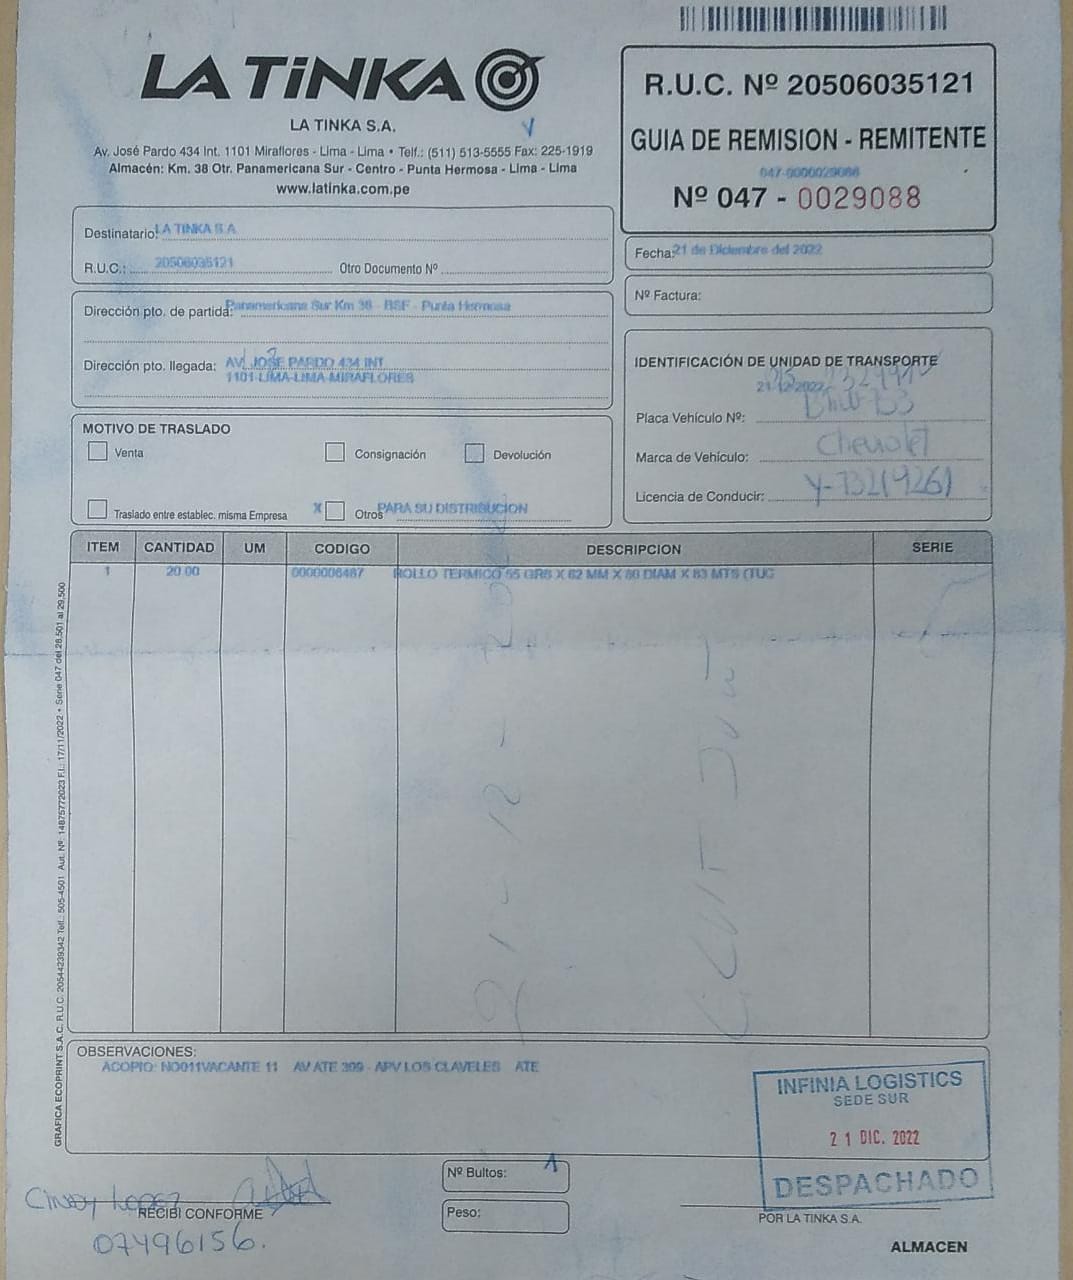 LA TiNKA
LA TINKA S.A.
Av. José Pardo 434 Int. 1101 Miraflores - Lima - Lima • Telf.: (511) 513-5555 Fax: 225-1919
Almacén: Km. 38 Otr. Panamericana Sur - Centro - Punta Hermosa - Lima - Lima
www.latinka.com.pe
R.U.C. Nº 20506035121
GUIA DE REMISION - REMITENTE
047-0000029088
Nº 047 - 0029088
Destinatario: LA TINKA S.A.
R.U.C.: 20506035121 Otro Documento Nº
Fecha: 21 de Diciembre del 2022
Nº Factura:
Dirección pto. de partida: Panamericana Sur Km 38 - BSF - Punta Hermosa
Dirección pto. llegada: AV. JOSE PARDO 434 INT
1101-LIMA-LIMA-MIRAFLORES
IDENTIFICACIÓN DE UNIDAD DE TRANSPORTE
21/12/2022
Placa Vehículo Nº:
Marca de Vehículo: Chevrolet
Licencia de Conducir: Y-73219261
MOTIVO DE TRASLADO
Venta Consignación Devolución
Traslado entre establec. misma Empresa X Otros PARA SU DISTRIBUCION
ITEM CANTIDAD UM CODIGO DESCRIPCION SERIE
1 20.00 0000006467 ROLLO TERMICO 55 GRS X 62 MM X 80 DIAM X 83 MTS (TUC
21-12-
GRAFICA ECOPRINT S.A.C. R.U.C. 20544239342 Telf.: 505-4501 Aut. Nº: 14875772023 F.I.: 17/11/2022 • Serie 047 del 28,501 al 29,500
OBSERVACIONES:
ACOPIO: NO011VACANTE 11 AV ATE 309 - APV LOS CLAVELES ATE
INFINIA LOGISTICS
SEDE SUR
21 DIC. 2022
DESPACHADO
Nº Bultos: 1
Peso:
Cindy Lopez
RECIBI CONFORME
07496156.
POR LA TINKA S.A.
ALMACEN